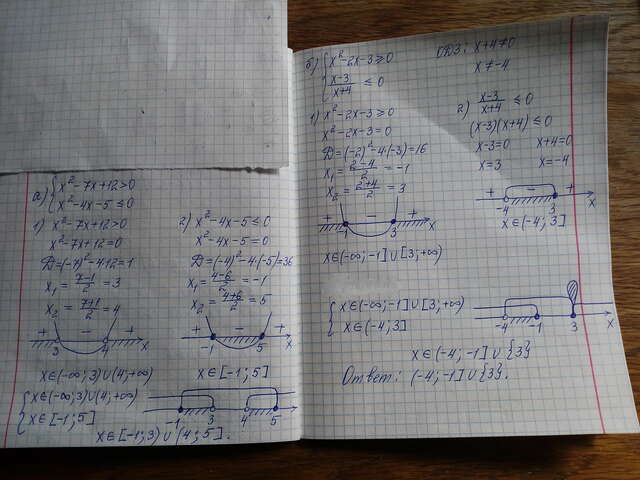 а) { x² - 7x + 12 > 0
x² - 4x - 5 ≤ 0
1) x² - 7x + 12 > 0
x² - 7x + 12 = 0
D = (-7)² - 4·12 = 1
x₁ = (7-1)/2 = 3
x₂ = (7+1)/2 = 4
+ - +
3 4 x
x∈(-∞; 3)∪(4; +∞)
2) x² - 4x - 5 ≤ 0
x² - 4x - 5 = 0
D = (-4)² - 4·(-5) = 36
x₁ = (4-6)/2 = -1
x₂ = (4+6)/2 = 5
+ - +
-1 5 x
x∈[-1; 5]
{ x∈(-∞; 3)∪(4; +∞)
x∈[-1; 5]
-1 3 4 5
x∈[-1; 3)∪(4; 5].
б) { x² - 2x - 3 ≥ 0
(x-3)/(x+4) ≤ 0
ОДЗ: x+4≠0
x≠-4
1) x² - 2x - 3 ≥ 0
x² - 2x - 3 = 0
D = (-2)² - 4·(-3) = 16
x₁ = (2-4)/2 = -1
x₂ = (2+4)/2 = 3
+ - +
-1 3 x
x∈(-∞; -1]∪[3; +∞)
2) (x-3)/(x+4) ≤ 0
(x-3)(x+4) ≤ 0
x-3=0 x+4=0
x=3 x=-4
+ - +
-4 3 x
x∈(-4; 3]
{ x∈(-∞; -1]∪[3; +∞)
x∈(-4; 3]
-4 -1 3 x
x∈(-4; -1]∪{3}
Ответ: (-4; -1]∪{3}.